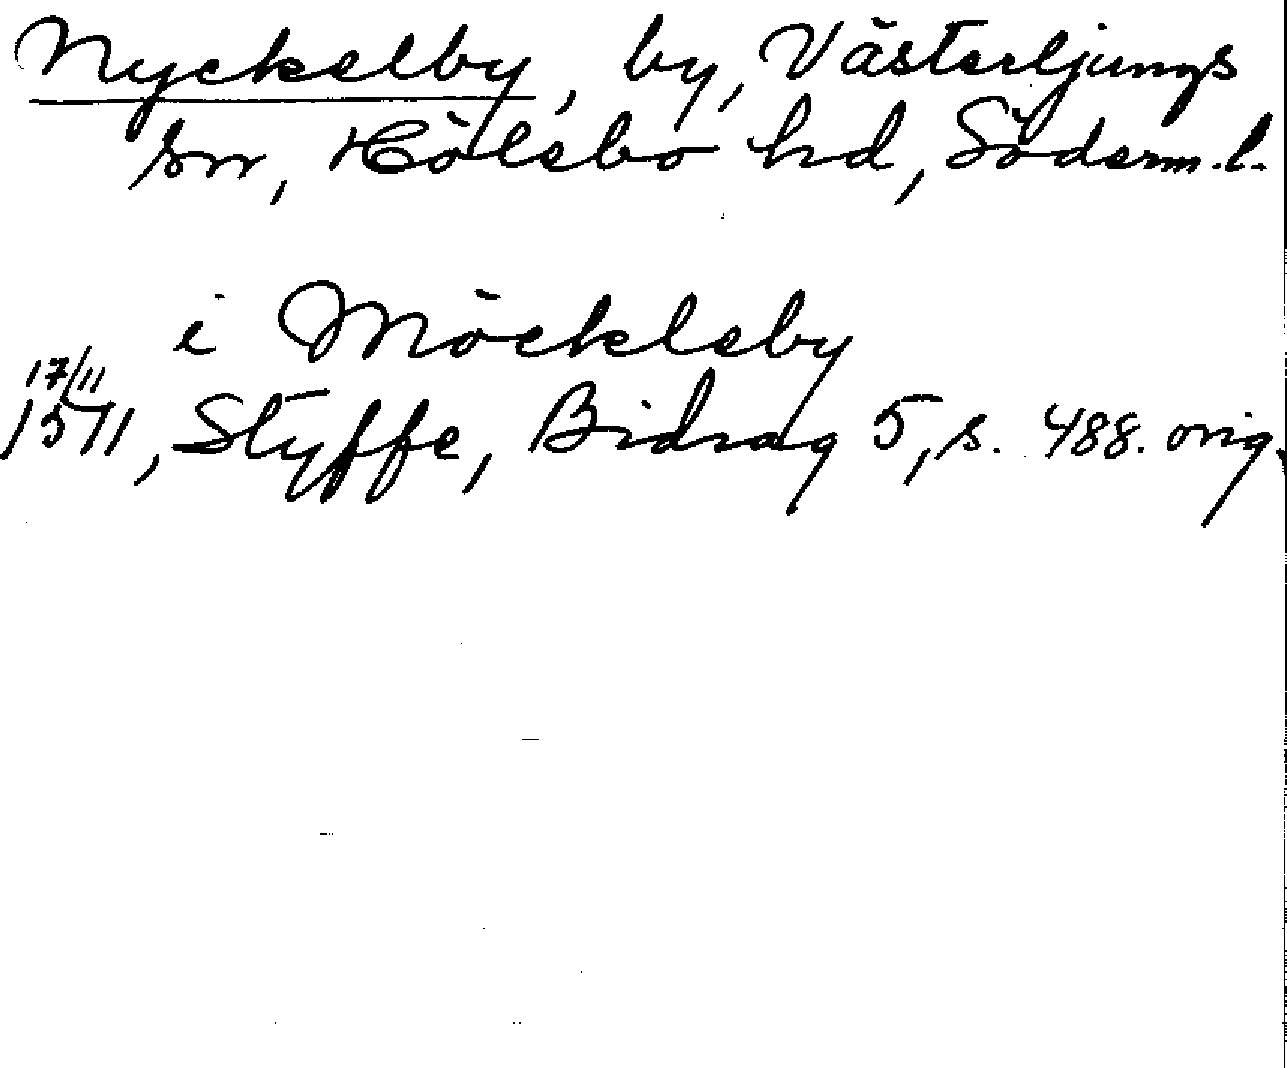 Nyckelby, by, Västerljungs
sn, Hölebo hd, Söderm.l.
i Möckleby
17/11
1511, Styffe, Bidrag 5, s. 488. orig.